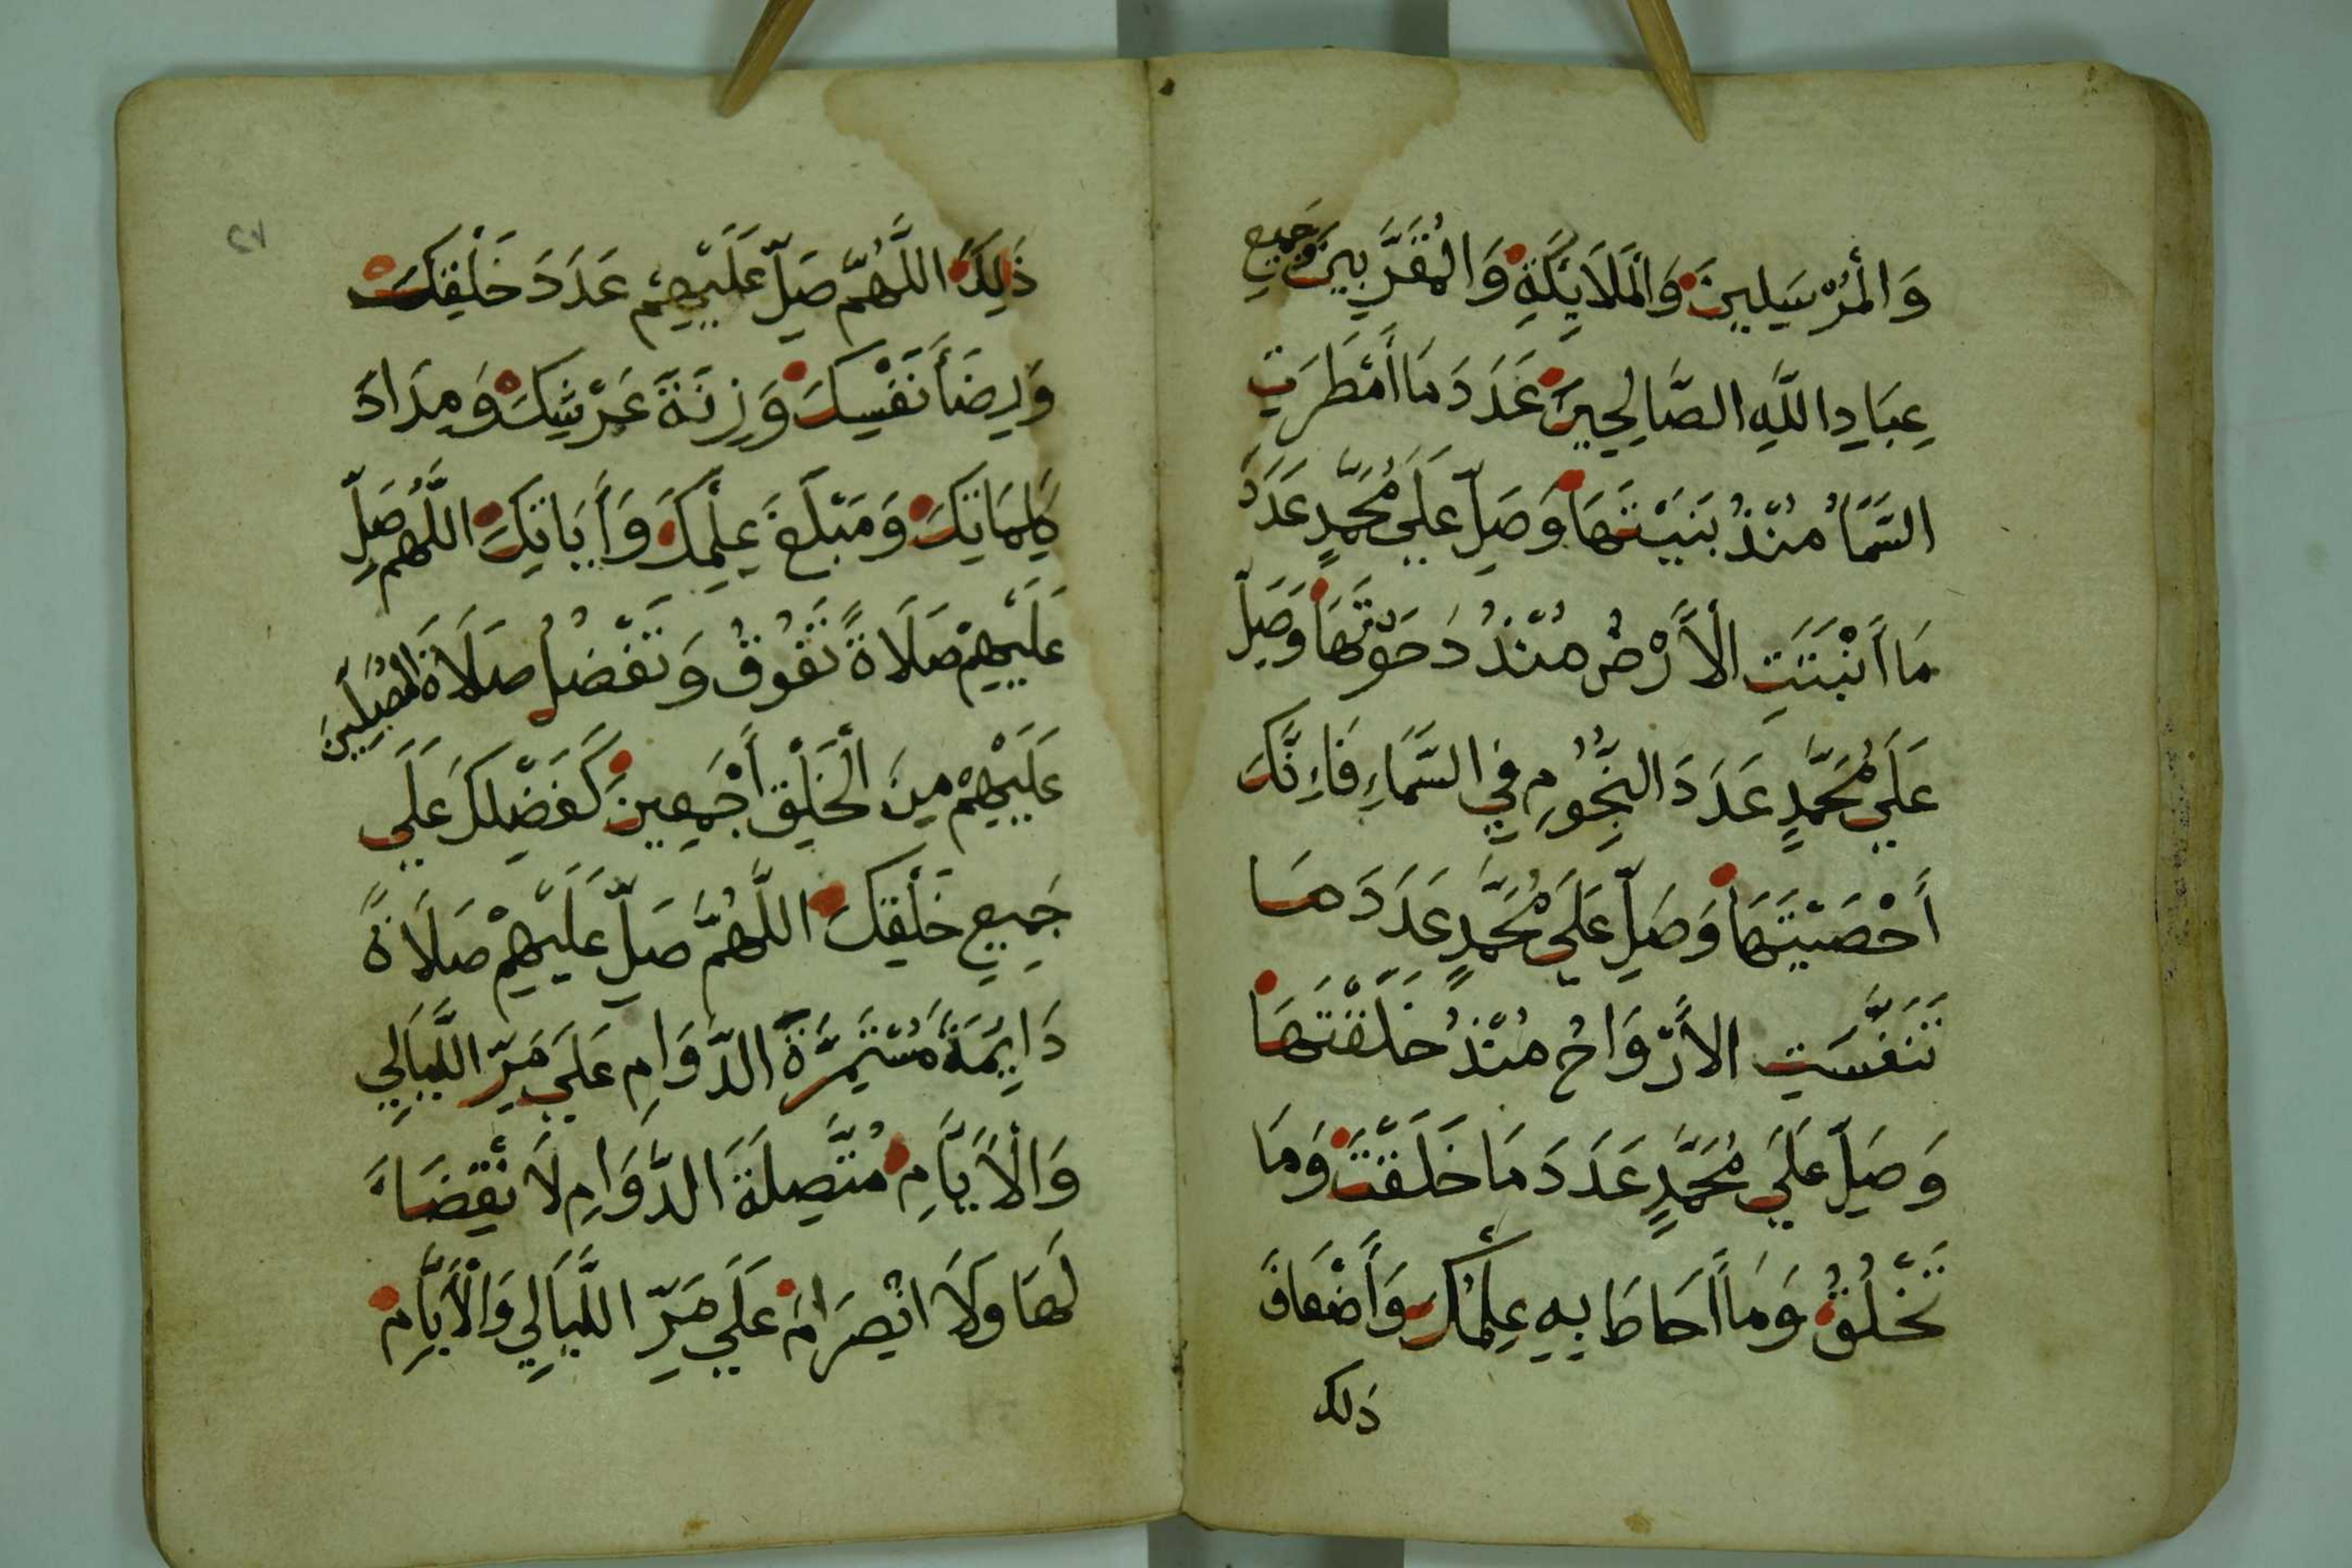 وَالْمُرْسَلِينَ وَالْمَلَايِكَةِ وَالْمُقَرَّبِينَ وَجَمِيعِ
عِبَادِ اللَّهِ الصَّالِحِينَ عَدَدَ مَا أَمْطَرَتِ
السَّمَاُ مُنْذُ بَنَيْتَهَا وَصَلِّ عَلَي مُحَمَّدٍ عَدَدَ
مَا أَنْبَتَتِ الْأَرْضُ مُنْذُ دَحَوْتَهَا وَصَلِّ
عَلَي مُحَمَّدٍ عَدَدَ النُّجُومِ فِي السَّمَاءِ فَاِنَّكَ
أَحْصَيْتَهَا وَصَلِّ عَلَي مُحَمَّدٍ عَدَدَ مَا
تَنَفَّسَتِ الأَرْوَاحُ مُنْذُ خَلَقْتَهَا
وَصَلِّ عَلَي مُحَمَّدٍ عَدَدَ مَا خَلَقْتَ وَمَا
تَخْلُقُ وَمَا أَحَاطَ بِهِ عِلْمُكَ وَأَضْعَافَ
ذلك
٢٧
ذَلِكَ اللَّهُمَّ صَلِّ عَلَيْهِمْ عَدَدَ خَلْقِكَ
وَرِضَا نَفْسِكَ وَزِنَةَ عَرْشِكَ وَمِدَادَ
كَلِمَاتِكَ وَمَبْلَغَ عِلْمِكَ وَأَيَاتِكَ اللَّهُمَّ صَلِّ
عَلَيْهِمْ صَلَاةً تَفُوقُ وَتَفْضُلُ صَلَاةَ الْمُصَلِّينَ
عَلَيْهِمْ مِنَ الْخَلْقِ أَجْمَعِينَ كَفَضْلِكَ عَلَي
جَمِيعِ خَلْقِكَ اللَّهُمَّ صَلِّ عَلَيْهِمْ صَلَاةً
دَايِمَةً مُسْتَمِرَّةَ الدَّوَامِ عَلَي مَرِّ اللَّيَالِي
وَالْأَيَّامِ مُتَّصِلَةَ الدَّوَامِ لَا انْقِضَاءَ
لَهَا وَلَا انْصِرَامَ عَلَي مَرِّ اللَّيَالِي وَالْأَيَّامِ